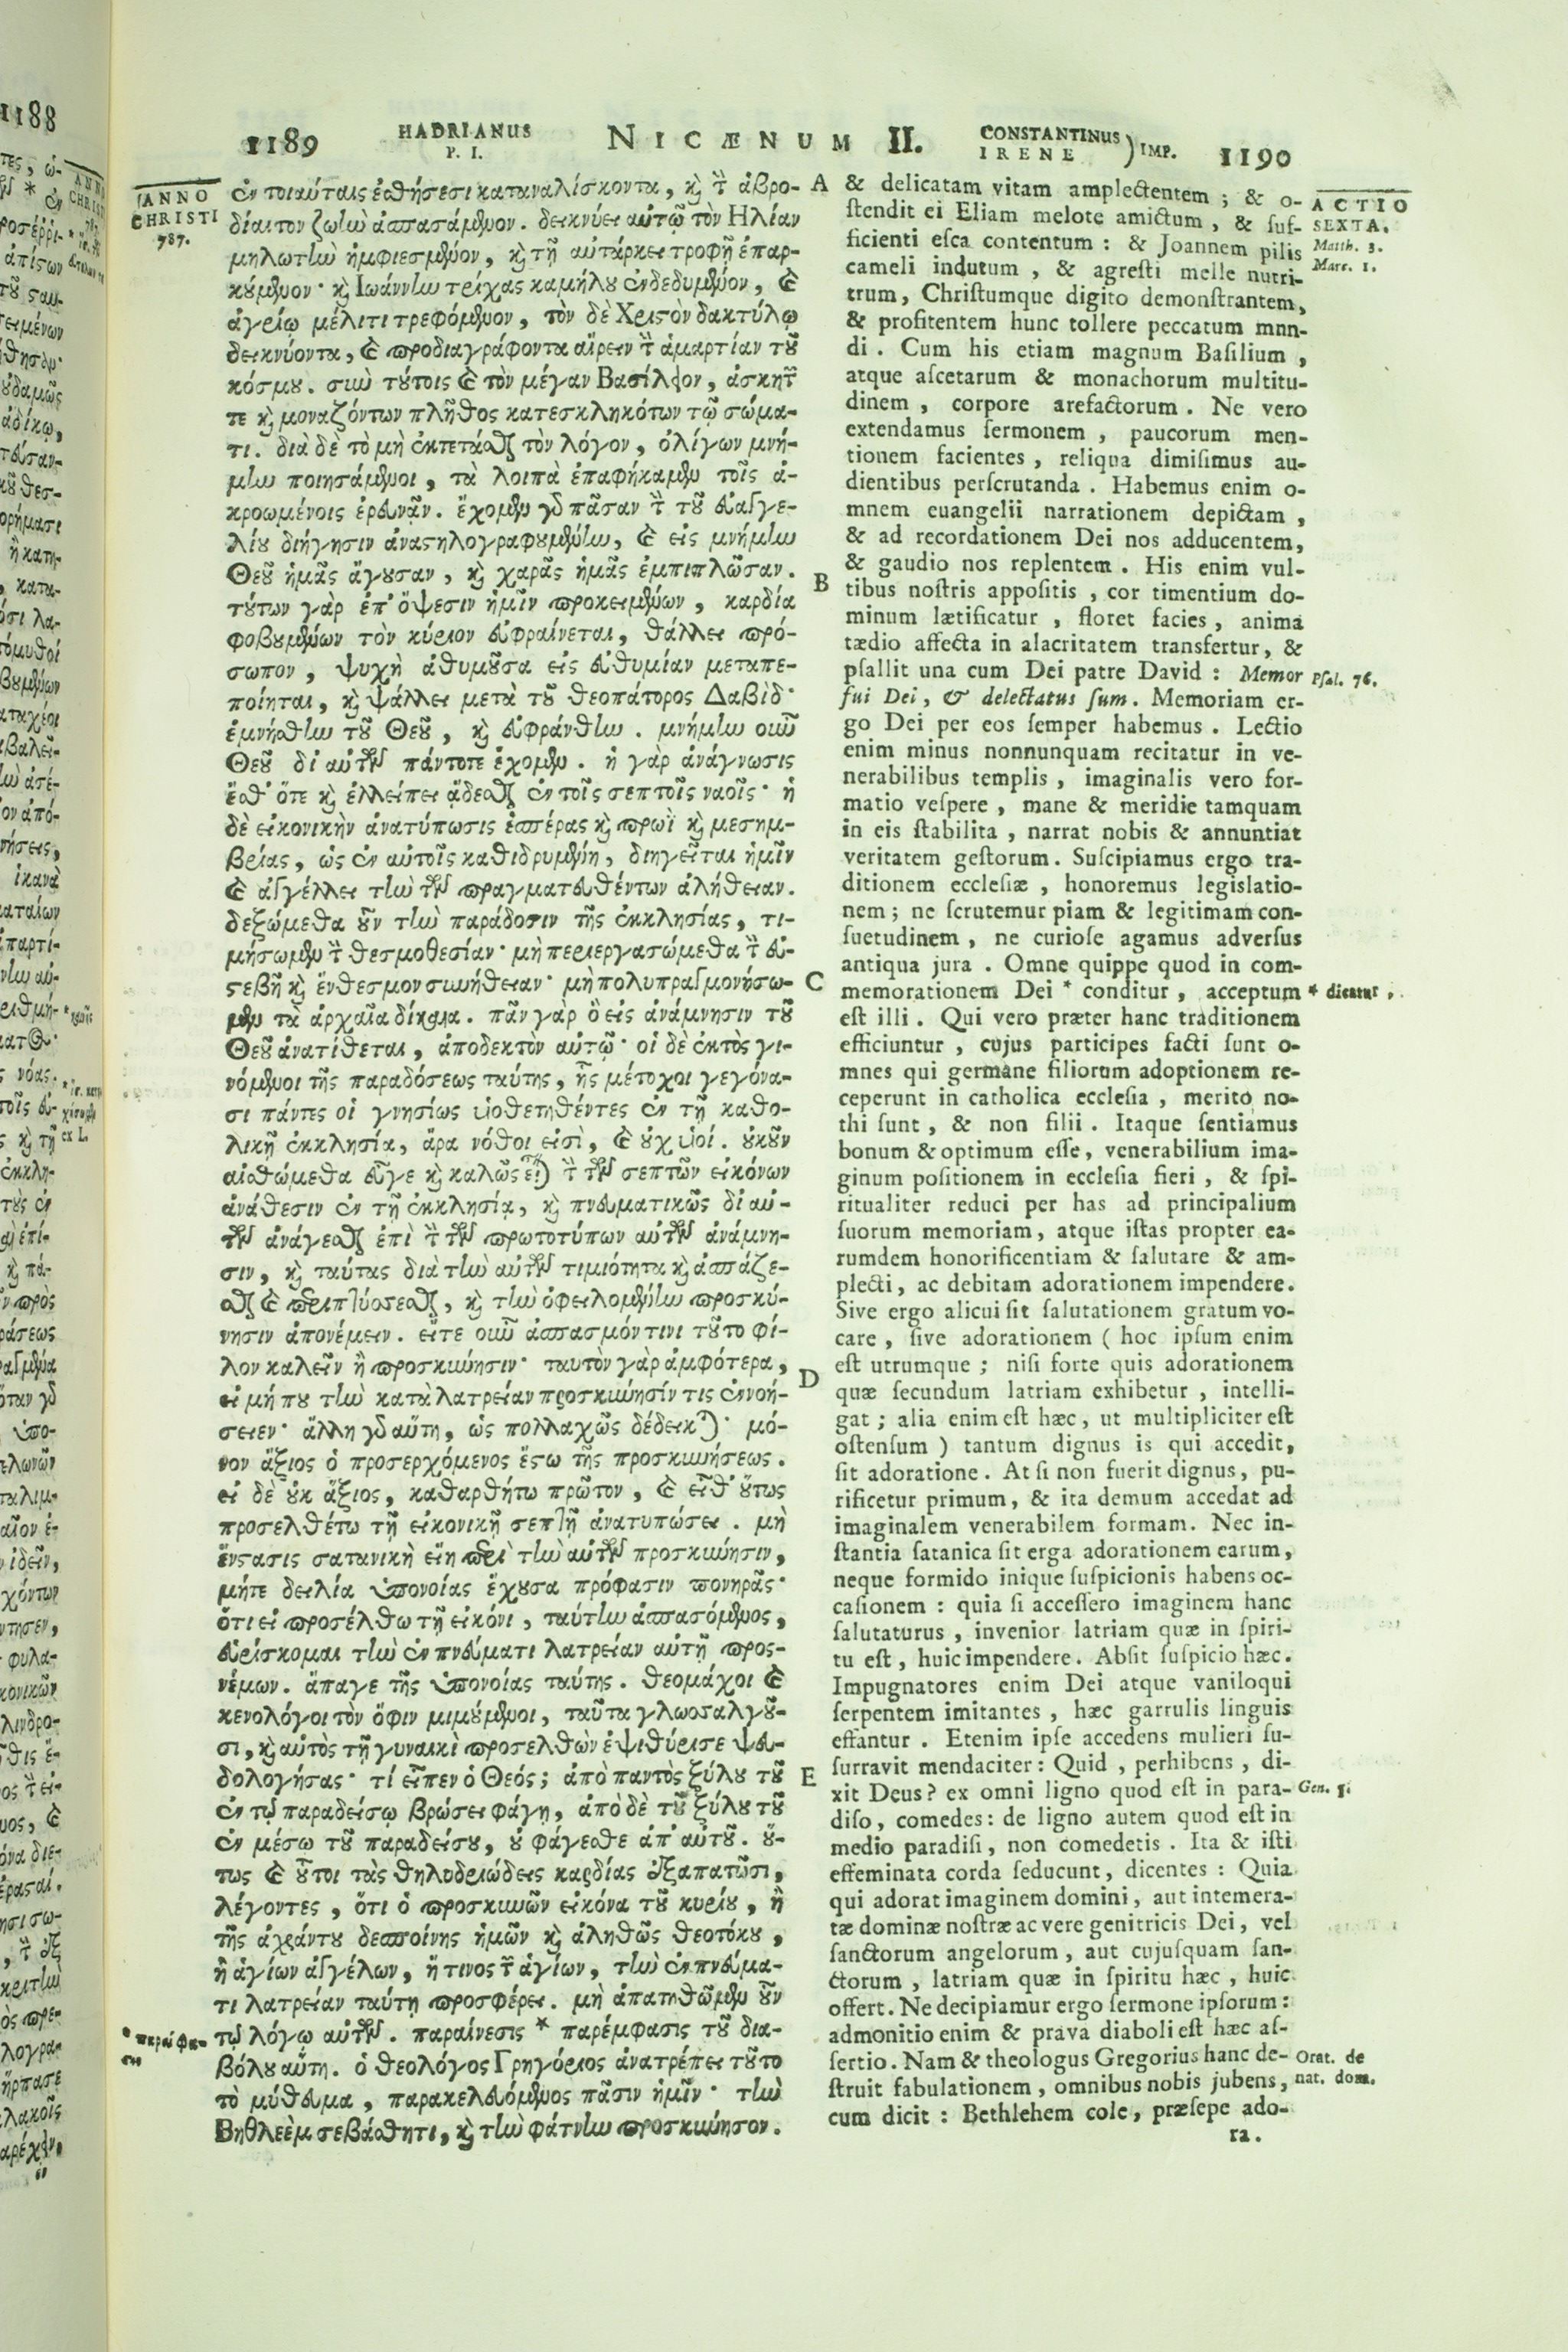 1189 HADRIANUS P. I. NICÆNUM II. CONSTANTINUS IRENE ) IMP. 1190
ANNO
CHRISTI
787.
ἐν τοιαύταις ἐσθήσεσι καταναλίσκοντα, καὶ τὴν ἁβρο-
δίαιτον ζωὴν ἀσπασάμενον. δεικνύει αὐτῷ τὸν Ηλίαν
μηλωτὴν ἠμφιεσμένον, καὶ τῇ αὐτάρκει τροφῇ ἐπαρ-
κούμενον· καὶ Ιωάννην τρίχας καμήλου ἐνδεδυμένον, καὶ
ἀγρίῳ μέλιτι τρεφόμενον, τὸν δὲ Χριστὸν δακτύλῳ
δεικνύοντα, καὶ προδιαγράφοντα αἴρειν τὴν ἁμαρτίαν τοῦ
κόσμου. σὺν τούτοις καὶ τὸν μέγαν Βασίλειον, ἀσκητῶν
τε καὶ μοναζόντων πλῆθος κατεσκληκότων τῷ σώμα-
τι. διὰ δὲ τὸ μὴ ἐκτετάσθαι τὸν λόγον, ὀλίγων μνή-
μην ποιησάμενοι, τὰ λοιπὰ ἐπαφήκαμεν τοῖς ἀ-
κροωμένοις ἐρευνᾷν. ἔχομεν γὰρ πᾶσαν τὴν τοῦ εὐαγγε-
λίου διήγησιν ἀναστηλογραφουμένην, καὶ εἰς μνήμην
Θεοῦ ἡμᾶς ἄγουσαν, καὶ χαρᾶς ἡμᾶς ἐμπιπλῶσαν.
τούτων γὰρ ἐπ' ὄψεσιν ἡμῖν προκειμένων, καρδία
φοβουμένων τὸν κύριον εὐφραίνεται, θάλλει πρό-
σωπον, ψυχὴ ἀθυμοῦσα εἰς εὐθυμίαν μεταπε-
ποίηται, καὶ ψάλλει μετὰ τοῦ θεοπάτορος Δαβίδ·
ἐμνήσθην τοῦ Θεοῦ, καὶ εὐφράνθην. μνήμην οὖν
Θεοῦ δι αὐτῶν πάντοτε ἔχομεν. ἡ γὰρ ἀνάγνωσις
ἔσθ' ὅτε καὶ ἐλλείπει ᾄδεσθαι ἐν τοῖς σεπτοῖς ναοῖς· ἡ
δὲ εἰκονικὴν ἀνατύπωσις ἑσπέρας καὶ πρωῒ καὶ μεσημ-
βρίας, ὡς ἐν αὐτοῖς καθιδρυμένη, διηγεῖται ἡμῖν
καὶ ἀγγέλλει τὴν τῶν πραγματευθέντων ἀλήθειαν.
δεξώμεθα οὖν τὴν παράδοσιν τῆς ἐκκλησίας, τι-
μήσωμεν τὴν θεσμοθεσίαν· μὴ περιεργασώμεθα τὴν εὐ-
σεβῆ καὶ ἔνθεσμον συνήθειαν· μὴ πολυπραγμονήσω-
μεν τὰ ἀρχαῖα δίκαια. πᾶν γὰρ ὃ εἰς ἀνάμνησιν τοῦ
Θεοῦ ἀνατίθεται, ἀποδεκτὸν αὐτῷ· οἱ δὲ ἐκτὸς γι-
νόμενοι τῆς παραδόσεως ταύτης, ἧς μέτοχοι γεγόνα-
σι πάντες οἱ γνησίως υἱοθετηθέντες ἐν τῇ καθο-
λικῇ ἐκκλησίᾳ, ἄρα νόθοι εἰσὶ, καὶ οὐχ υἱοί. οὐκοῦν
αἰσθώμεθα εὖγε καὶ καλῶς εἶναι τὴν τῶν σεπτῶν εἰκόνων
ἀνάθεσιν ἐν τῇ ἐκκλησίᾳ, καὶ πνευματικῶς δι αὐ-
τῶν ἀνάγεσθαι ἐπὶ τὴν τῶν πρωτοτύπων αὐτῶν ἀνάμνη-
σιν, καὶ ταύτας διὰ τὴν αὐτῶν τιμιότητα καὶ ἀσπάζε-
σθαι καὶ περιπτύσσεσθαι, καὶ τὴν ὀφειλομένην προσκύ-
νησιν ἀπονέμειν. εἴτε οὖν ἀσπασμόν τινι τοῦτο φί-
λον καλεῖν ἢ προσκύνησιν· ταυτὸν γὰρ ἀμφότερα,
εἰ μή που τὴν κατὰ λατρείαν προσκύνησίν τις ἐννοή-
σειεν· ἄλλη γὰρ αὕτη, ὡς πολλαχῶς δέδεικται· μό-
νον ἄξιος ὁ προσερχόμενος ἔστω τῆς προσκυνήσεως.
εἰ δὲ οὐκ ἄξιος, καθαρθήτω πρῶτον, καὶ εἶθ' οὕτως
προσελθέτω τῇ εἰκονικῇ σεπτῇ ἀνατυπώσει. μὴ
ἔνστασις σατανικὴ εἴη περὶ τὴν αὐτῶν προσκύνησιν,
μήτε δειλία ὑπονοίας ἔχουσα πρόφασιν πονηρᾶς·
ὅτι εἰ προσέλθω τῇ εἰκόνι, ταύτην ἀσπασόμενος,
εὑρίσκομαι τὴν ἐν πνεύματι λατρείαν αὐτῇ προς-
νέμων. ἄπαγε τῆς ὑπονοίας ταύτης. θεομάχοι καὶ
κενολόγοι τὸν ὄφιν μιμούμενοι, ταῦτα γλωσσαλγοῦ-
σι, καὶ αὐτὸς τῇ γυναικὶ προσελθὼν ἐψιθύρισε ψευ-
δολογήσας· τί εἶπεν ὁ Θεός; ἀπὸ παντὸς ξύλου τοῦ
ἐν τῷ παραδείσῳ βρώσει φάγῃ, ἀπὸ δὲ τοῦ ξύλου τοῦ
ἐν μέσῳ τοῦ παραδείσου, οὐ φάγεσθε ἀπ' αὐτοῦ. οὕ-
τως καὶ οὗτοι τὰς θηλυδριώδεις καρδίας ἐξαπατῶσι,
λέγοντες, ὅτι ὁ προσκυνῶν εἰκόνα τοῦ κυρίου, ἢ
τῆς ἀχράντου δεσποίνης ἡμῶν καὶ ἀληθῶς θεοτόκου,
ἢ ἁγίων ἀγγέλων, ἤ τινος τῶν ἁγίων, τὴν ἐν πνεύμα-
τι λατρείαν ταύτῃ προσφέρει. μὴ ἀπατηθῶμεν οὖν
τῷ λόγῳ αὐτῶν. παραίνεσις * παρέμφασις τοῦ δια-
βόλου αὕτη. ὁ θεολόγος Γρηγόριος ἀνατρέπει τοῦτο
τὸ μύθευμα, παρακελευόμενος πᾶσιν ἡμῖν· τὴν
Βηθλεὲμ σεβάσθητι, καὶ τὴν φάτνην προσκύνησον.
A
B
C
D
E
& delicatam vitam amplectentem ; & o-
stendit ei Eliam melote amictum, & suf-
ficienti esca contentum : & Joannem pilis
cameli indutum, & agresti melle nutri-
trum, Christumque digito demonstrantem,
& profitentem hunc tollere peccatum mnn-
di. Cum his etiam magnum Basilium,
atque ascetarum & monachorum multitu-
dinem, corpore arefactorum. Ne vero
extendamus sermonem, paucorum men-
tionem facientes, reliqua dimisimus au-
dientibus perscrutanda. Habemus enim o-
mnem euangelii narrationem depictam,
& ad recordationem Dei nos adducentem,
& gaudio nos replentem. His enim vul-
tibus nostris appositis, cor timentium do-
minum lætificatur, floret facies, anima
tædio affecta in alacritatem transfertur, &
psallit una cum Dei patre David : Memor
fui Dei, & delectatus sum. Memoriam er-
go Dei per eos semper habemus. Lectio
enim minus nonnunquam recitatur in ve-
nerabilibus templis, imaginalis vero for-
matio vespere, mane & meridie tamquam
in eis stabilita, narrat nobis & annuntiat
veritatem gestorum. Suscipiamus ergo tra-
ditionem ecclesiæ, honoremus legislatio-
nem; ne scrutemur piam & legitimam con-
suetudinem, ne curiose agamus adversus
antiqua jura. Omne quippe quod in com-
memorationem Dei * conditur, acceptum
est illi. Qui vero præter hanc traditionem
efficiuntur, cujus participes facti sunt o-
mnes qui germane filiorum adoptionem re-
ceperunt in catholica ecclesia, merito no-
thi sunt, & non filii. Itaque sentiamus
bonum & optimum esse, venerabilium ima-
ginum positionem in ecclesia fieri, & spi-
ritualiter reduci per has ad principalium
suorum memoriam, atque istas propter ea-
rumdem honorificentiam & salutare & am-
plecti, ac debitam adorationem impendere.
Sive ergo alicui sit salutationem gratum vo-
care, sive adorationem ( hoc ipsum enim
est utrumque ; nisi forte quis adorationem
quæ secundum latriam exhibetur, intelli-
gat ; alia enim est hæc, ut multipliciter est
ostensum ) tantum dignus is qui accedit,
sit adoratione. At si non fuerit dignus, pu-
rificetur primum, & ita demum accedat ad
imaginalem venerabilem formam. Nec in-
stantia satanica sit erga adorationem earum,
neque formido inique suspicionis habens oc-
casionem : quia si accessero imaginem hanc
salutaturus, invenior latriam quæ in spiri-
tu est, huic impendere. Absit suspicio hæc.
Impugnatores enim Dei atque vaniloqui
serpentem imitantes, hæc garrulis linguis
effantur. Etenim ipse accedens mulieri su-
surravit mendaciter: Quid, perhibens, di-
xit Deus? ex omni ligno quod est in para-
diso, comedes: de ligno autem quod est in
medio paradisi, non comedetis. Ita & isti
effeminata corda seducunt, dicentes : Quia
qui adorat imaginem domini, aut intemera-
tæ dominæ nostræ ac vere genitricis Dei, vel
sanctorum angelorum, aut cujusquam san-
ctorum, latriam quæ in spiritu hæc, huic
offert. Ne decipiamur ergo sermone ipsorum:
admonitio enim & prava diaboli est hæc as-
sertio. Nam & theologus Gregorius hanc de-
struit fabulationem, omnibus nobis jubens,
cum dicit : Bethlehem cole, præsepe ado-
ra.
ACTIO
SEXTA.
Matth. 3.
Marc. 1.
Psal. 76.
* dicatur,
Gen. 3.
Orat. de
nat. dom.